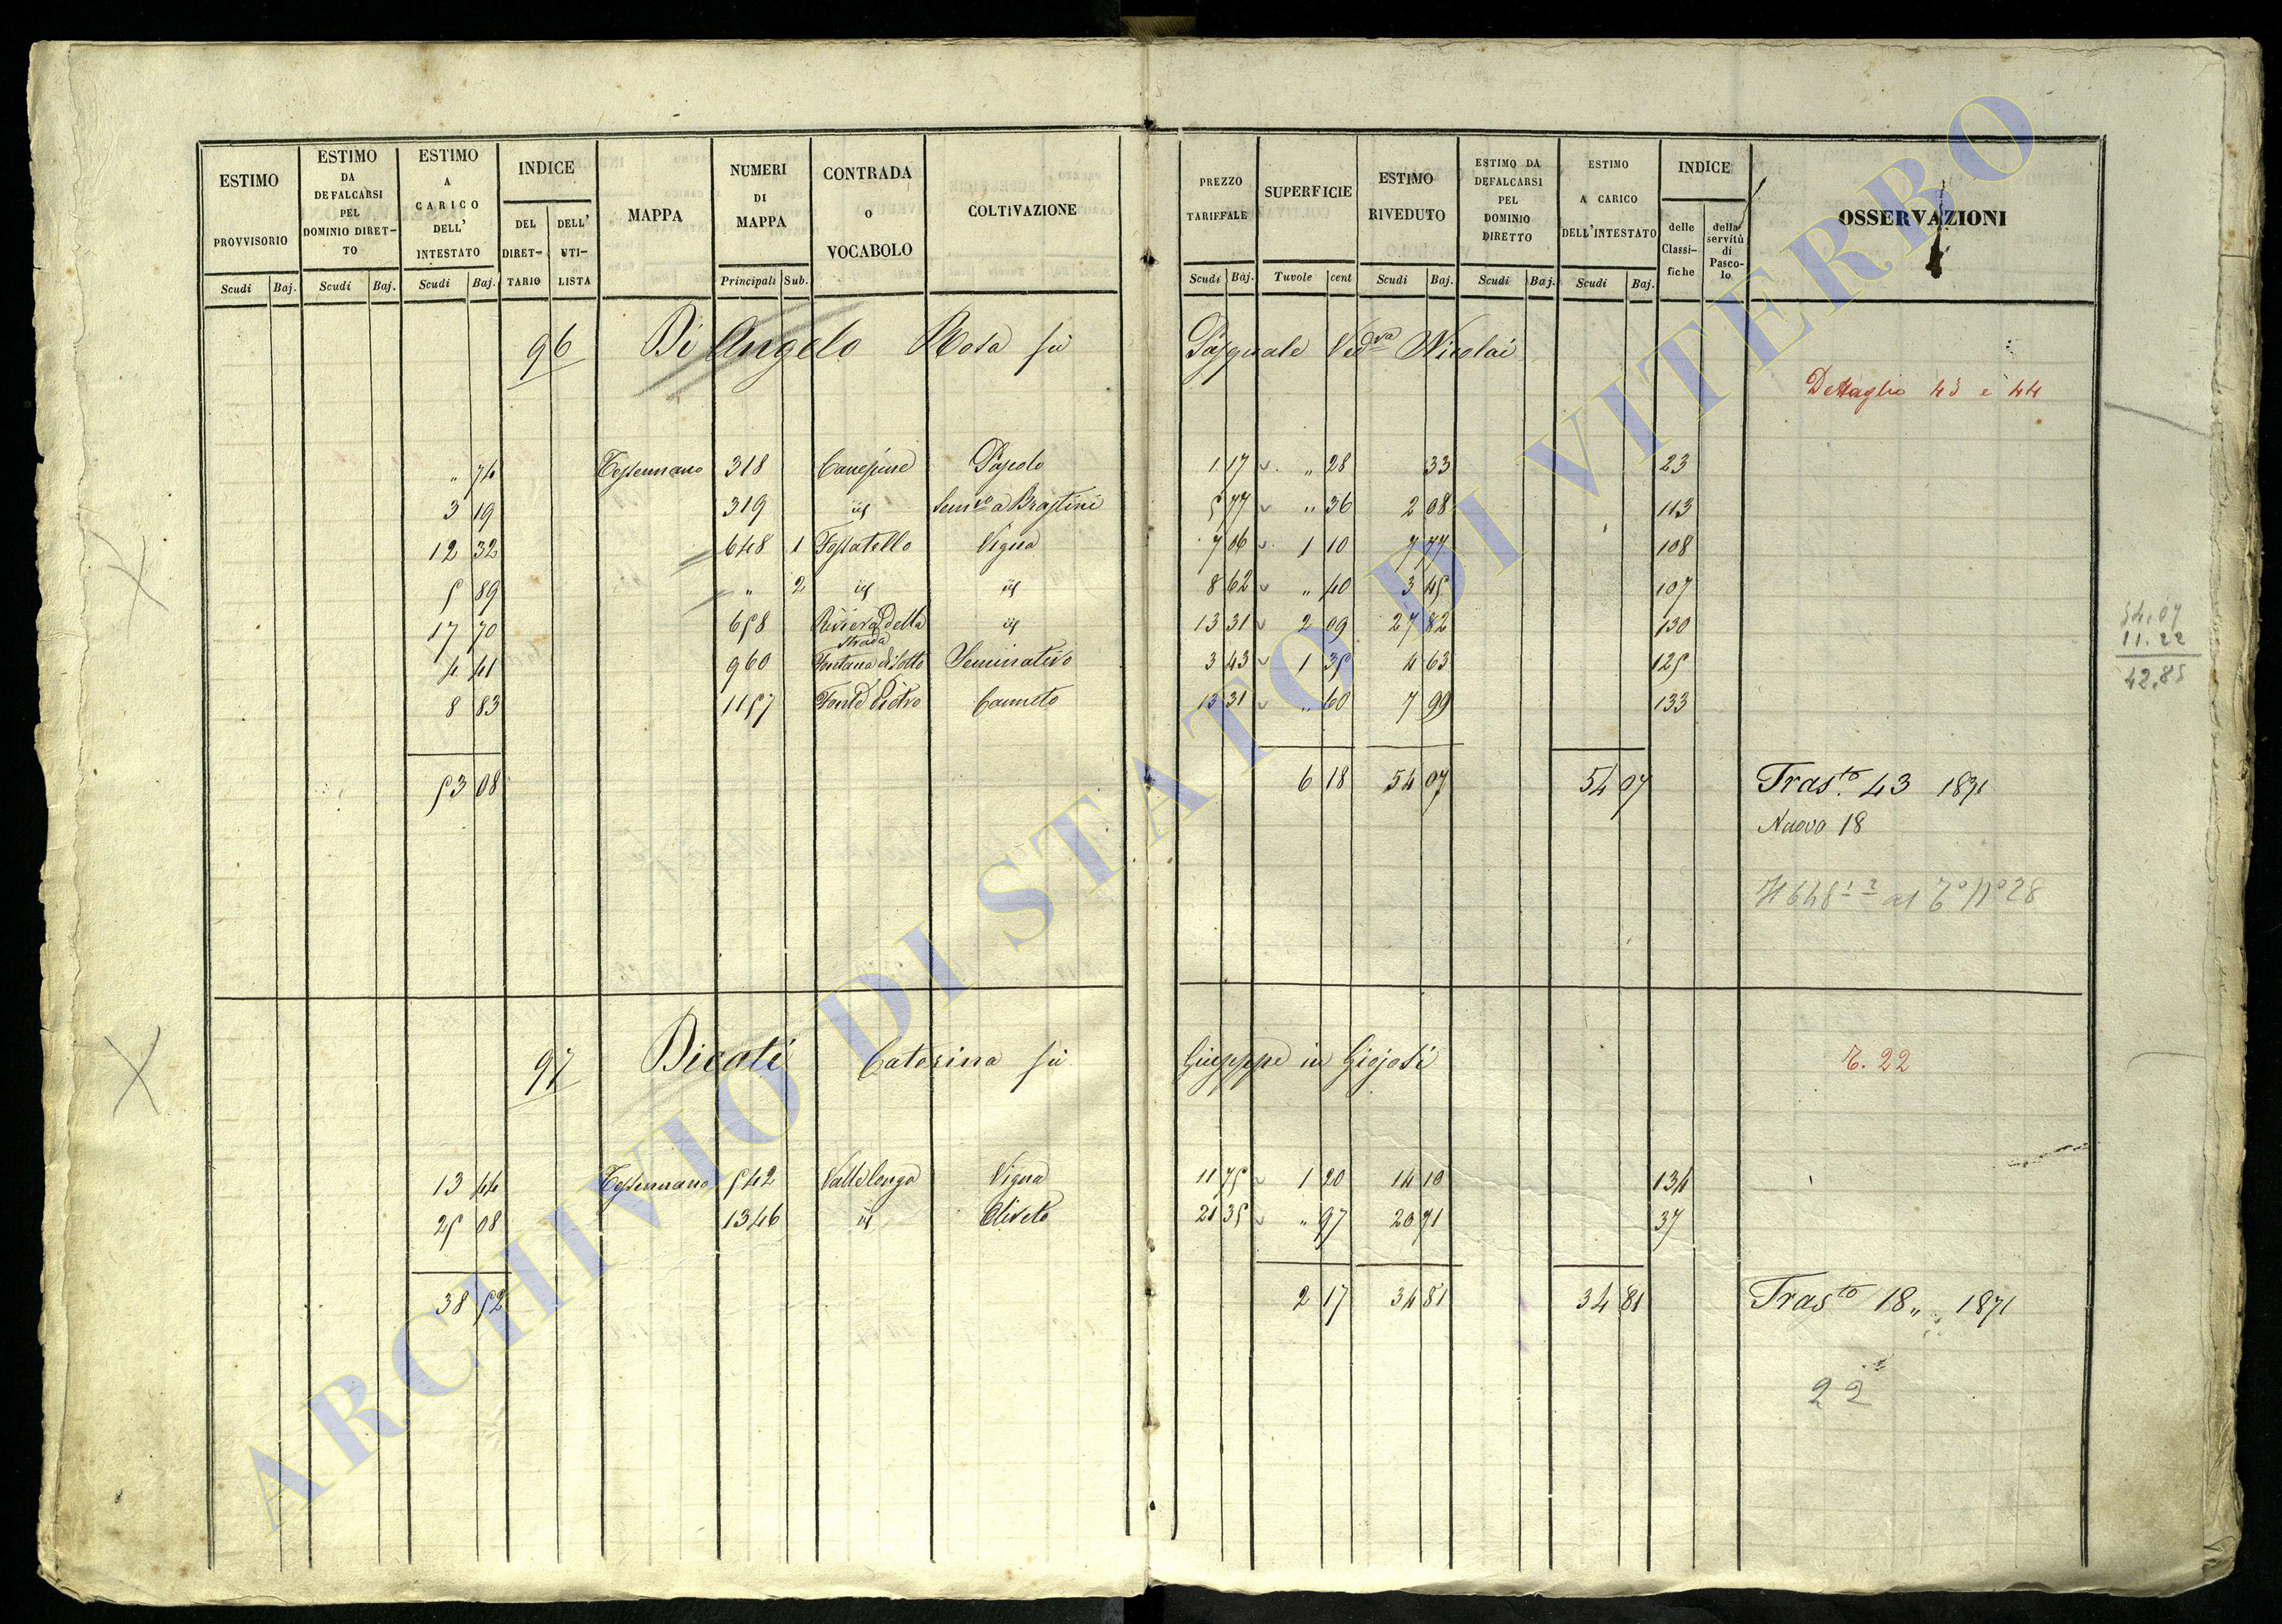 ESTIMO PROVVISORIO
ESTIMO DA DEFALCARSI PEL DOMINIO DIRETTO
ESTIMO A CARICO DELL' INTESTATO
INDICE
DEL DIRETTARIO
DELL' UTILISTA
MAPPA
NUMERI DI MAPPA
CONTRADA O VOCABOLO
COLTIVAZIONE
PREZZO TARIFFALE
SUPERFICIE
ESTIMO RIVEDUTO
ESTIMO DA DEFALCARSI PEL DOMINIO DIRETTO
ESTIMO A CARICO DELL'INTESTATO
INDICE
delle Classifiche
della servitù di Pascolo
OSSERVAZIONI
Scudi Baj. Scudi Baj. Scudi Baj. Principali Sub. Scudi Baj. Tavole cent Scudi Baj. Scudi Baj. Scudi Baj.
96 Di Angelo Rosa fù Pasquale Ved.va Nicolai
Dettaglio 43 e 44
„ 74 Tessennano 318 Canepine Pascolo 1 17 „ 28 33 23
3 19 319 id Sem.vo a Brastini 5 77 „ 36 2 08 113
12 32 648 1 Fossatello Vigna 7 06 1 10 7 77 108
5 89 „ 2 id id 8 62 „ 40 3 45 107
17 70 658 Riviera della Strada id 13 31 2 09 27 82 130
4 41 960 Fontana di Sotto Seminativo 3 43 1 35 4 63 125
8 83 1157 Font.e d. Pietro Canneto 13 31 „ 60 7 99 133
54,07
11.22
42,85
53 08 6 18 54 07 54 07 Tras.to 43 1871
Nuovo 18
N 648 1 2 al T° N° 28
97 Dicati Caterina fù Giuseppe in Giojosi
T. 22
13 44 Tessennano 542 Valle longa Vigna 11 75 1 20 14 10 134
25 08 1346 id Oliveto 21 35 „ 97 20 71 37
38 52 2 17 34 81 34 81 Tras.to 18 „ 1871
22
ARCHIVIO DI STATO DI VITERBO